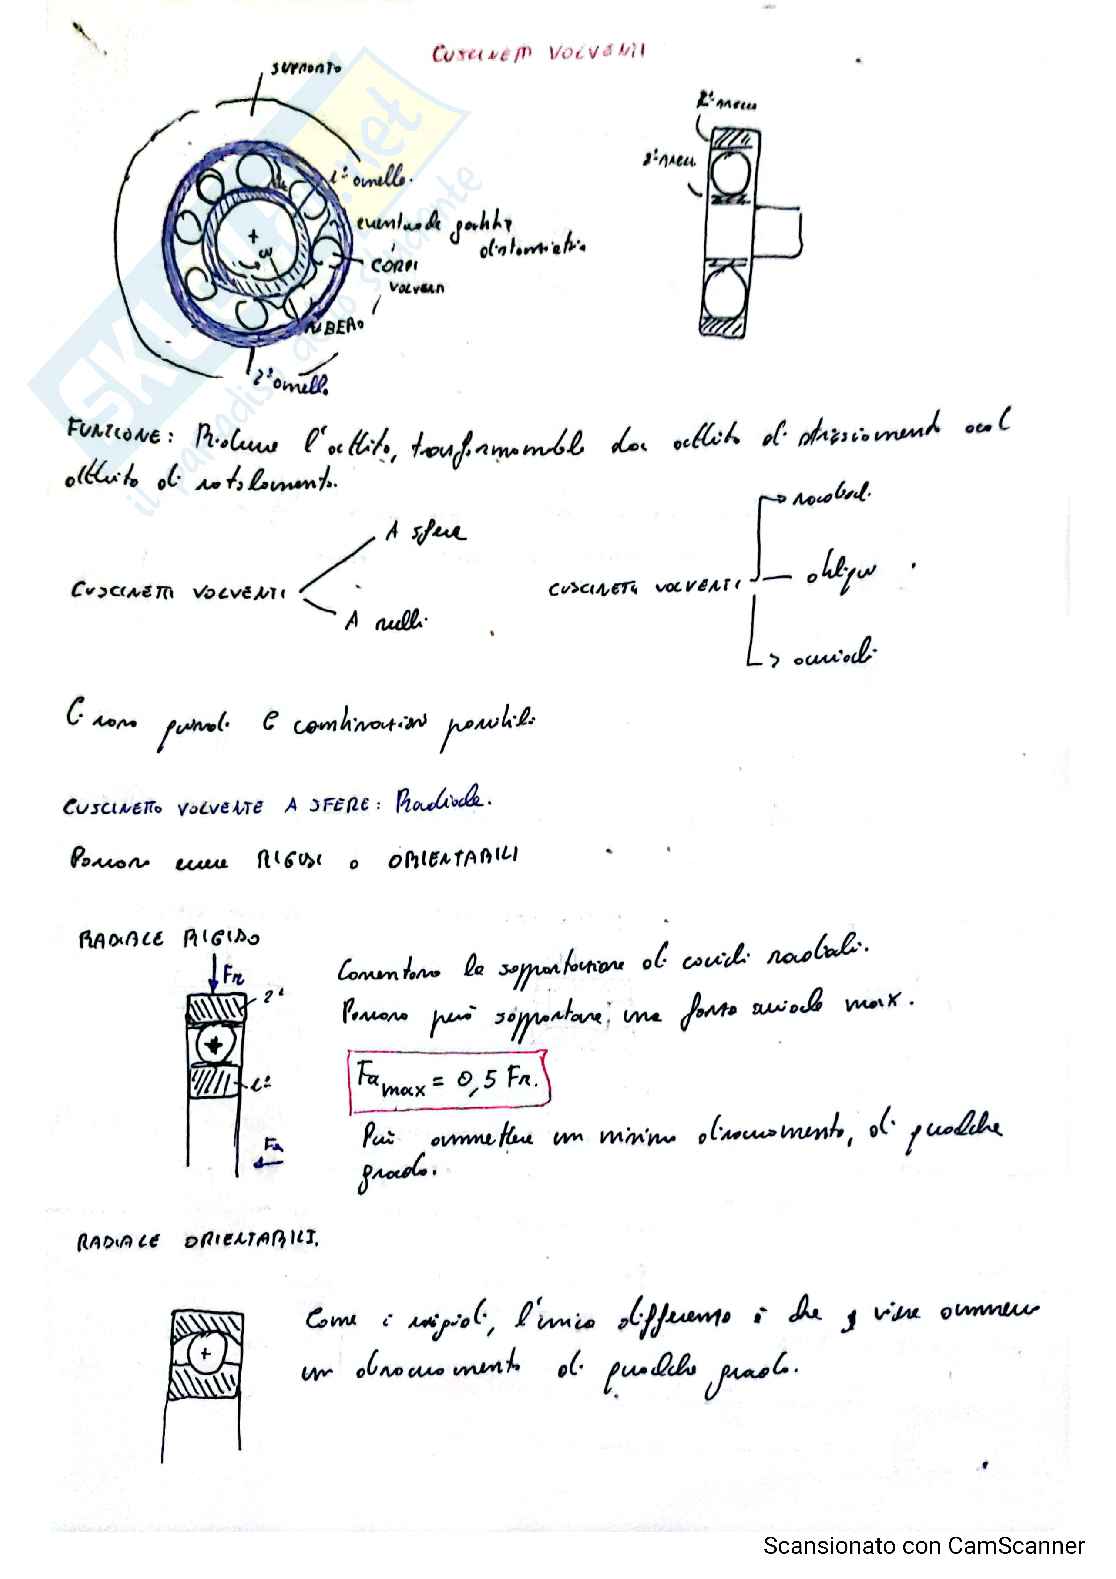 CUSCINETTI VOLVENTI
SUPPORTO
1° anello
eventuale gabbia
distanziatrice
CORPI
VOLVENTI
ALBERO
2° anello
2° anello
1° anello
SKUOLA.net
il paradiso dello studente
FUNZIONE: Ridurre l'attrito, trasformandolo da attrito di strisciamento ad
attrito di rotolamento.
CUSCINETTI VOLVENTI
A sfere
A rulli
CUSCINETTI VOLVENTI
radiali
obliqui
assiali
Ci sono quindi 6 combinazioni possibili
CUSCINETTO VOLVENTE A SFERE: Radiale.
Possono essere RIGIDI o ORIENTABILI
RADIALE RIGIDO
Fr
2°
1°
Fa
Consentono la sopportazione di carichi radiali.
Possono però sopportare una forza assiale max.
Fa max = 0,5 Fr.
Può ammettere un minimo disassamento, di qualche
grado.
RADIALE ORIENTABILI.
Come i rigidi, l'unica differenza è che viene ammesso
un disassamento di qualche grado.
Scansionato con CamScanner